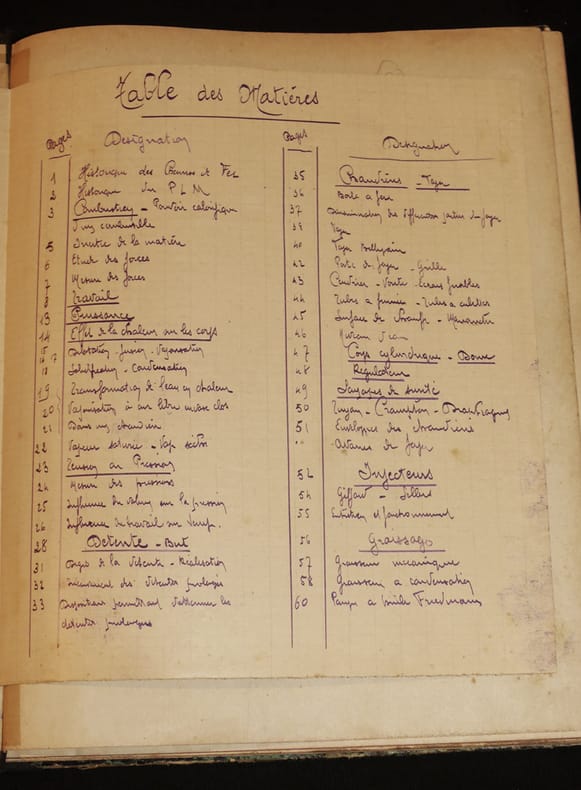 Table des Matières
Pages Désignation
1 Historique des Chemins de Fer
2 Historique du P L M
3 Combustion - Pouvoir calorifique
d'un combustible
5 Inertie de la matière
6 Etude des forces
7 Mesure des forces
8 Travail
13 Puissance
14 Effet de la chaleur sur les corps
Dilatation - fusion - Vaporisation
Solidification - Condensation
19 Transformation de l'eau en chaleur
20 Vaporisation à air libre
21 Dans une chaudière
22 Vapeur saturée - Vap
23 Tension ou Pression
24 Mesure des pressions
25 Influence du volume sur la pression
26 Influence du travail sur
28 Détente - But
31 de la détente - Réalisation
32 Inconvénient des détentes prolongées
33 Dispositions permettant d'atténuer les
détentes prolongées
Pages Désignation
35 Chaudières - Foyer
36 Boite a feu
37 des différentes parties du foyer
39 Foyer
40 Foyer Belpaire
42 Porte de foyer - Grille
43 Cendrier - Voute - Ecrans fusibles
44 Tubes a fumée - Tubes a ailettes
45 Surface de chauffe - Manomètre
46 Niveau d'eau
47 Corps cylindrique - Dome
48 Régulateur
49 Soupapes de sureté
50 Tuyau - Crampton
51 Enveloppes des Chaudières
" Avaries de foyer
52 Injecteurs
54 Giffard - Sellers
55 Entretien et fonctionnement
56 Graissage
57 Graisseur mécanique
58 Graisseur a condensation
60 Pompe a huile Friedmann